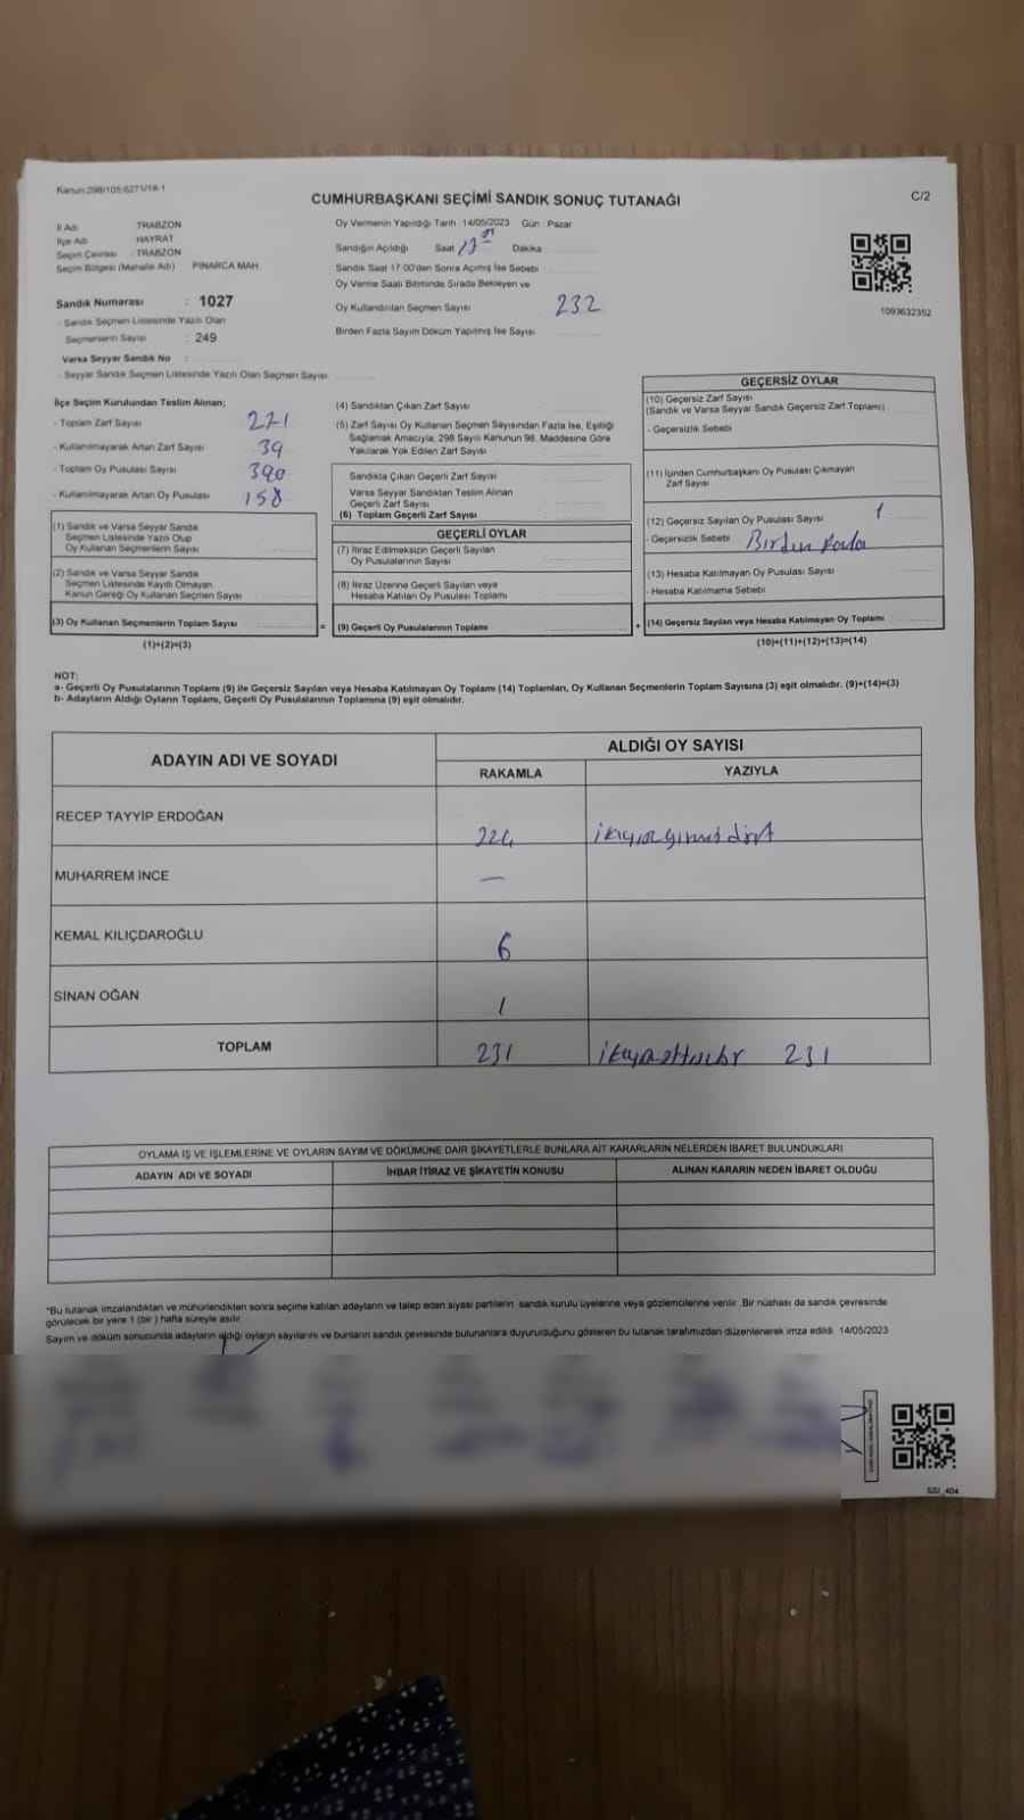 Kanun:298/105:6271/18-1
CUMHURBAŞKANI SEÇİMİ SANDIK SONUÇ TUTANAĞI
C/2
İl Adı TRABZON
İlçe Adı HAYRAT
Seçim Çevresi : TRABZON
Seçim Bölgesi (Mahalle Adı) PINARCA MAH.
Sandık Numarası : 1027
- Sandık Seçmen Listesinde Yazılı Olan
Seçmenlerin Sayısı : 249
Varsa Seyyar Sandık No :
- Seyyar Sandık Seçmen Listesinde Yazılı Olan Seçmen Sayısı
Oy Vermenin Yapıldığı Tarih 14/05/2023 Gün : Pazar
Sandığın Açıldığı Saat 17 Dakika
Sandık Saat 17:00'den Sonra Açılmış İse Sebebi
Oy Verme Saati Bitiminde Sırada Bekleyen ve
Oy Kullandırılan Seçmen Sayısı 232
Birden Fazla Sayım Döküm Yapılmış İse Sayısı
1093632352
İlçe Seçim Kurulundan Teslim Alınan;
- Toplam Zarf Sayısı 271
- Kullanılmayarak Artan Zarf Sayısı 39
- Toplam Oy Pusulası Sayısı 390
- Kullanılmayarak Artan Oy Pusulası 158
(1) Sandık ve Varsa Seyyar Sandık
Seçmen Listesinde Yazılı Olup
Oy Kullanan Seçmenlerin Sayısı
(2) Sandık ve Varsa Seyyar Sandık
Seçmen Listesinde Kayıtlı Olmayan
Kanun Gereği Oy Kullanan Seçmen Sayısı
(3) Oy Kullanan Seçmenlerin Toplam Sayısı
=
(1)+(2)=(3)
(4) Sandıktan Çıkan Zarf Sayısı
(5) Zarf Sayısı Oy Kullanan Seçmen Sayısından Fazla İse, Eşitliği
Sağlamak Amacıyla, 298 Sayılı Kanunun 98. Maddesine Göre
Yakılarak Yok Edilen Zarf Sayısı
Sandıkta Çıkan Geçerli Zarf Sayısı
Varsa Seyyar Sandıktan Teslim Alınan
Geçerli Zarf Sayısı
(6) Toplam Geçerli Zarf Sayısı
GEÇERLİ OYLAR
(7) İtiraz Edilmeksizin Geçerli Sayılan
Oy Pusulasının Sayısı
(8) İtiraz Üzerine Geçerli Sayılan veya
Hesaba Katılan Oy Pusulası Toplamı
(9) Geçerli Oy Pusulalarının Toplamı
+
GEÇERSİZ OYLAR
(10) Geçersiz Zarf Sayısı
(Sandık ve Varsa Seyyar Sandık Geçersiz Zarf Toplamı)
- Geçersizlik Sebebi
(11) İçinden Cumhurbaşkanı Oy Pusulası Çıkmayan
Zarf Sayısı
(12) Geçersiz Sayılan Oy Pusulası Sayısı 1
- Geçersizlik Sebebi Birden Fazla
(13) Hesaba Katılmayan Oy Pusulası Sayısı
- Hesaba Katılmama Sebebi
(14) Geçersiz Sayılan veya Hesaba Katılmayan Oy Toplamı
(10)+(11)+(12)+(13)=(14)
NOT:
a- Geçerli Oy Pusulalarının Toplamı (9) ile Geçersiz Sayılan veya Hesaba Katılmayan Oy Toplam (14) Toplamları, Oy Kullanan Seçmenlerin Toplam Sayısına (3) eşit olmalıdır. (9)+(14)=(3)
b- Adayların Aldığı Oyların Toplamı, Geçerli Oy Pusulalarının Toplamına (9) eşit olmalıdır.
ADAYIN ADI VE SOYADI
ALDIĞI OY SAYISI
RAKAMLA YAZIYLA
RECEP TAYYİP ERDOĞAN 224 ikiyüzyirmidört
MUHARREM İNCE —
KEMAL KILIÇDAROĞLU 6
SİNAN OĞAN 1
TOPLAM 231 ikiyüzotuzbir 231
OYLAMA İŞ VE İŞLEMLERİNE VE OYLARIN SAYIM VE DÖKÜMÜNE DAİR ŞİKAYETLERLE BUNLARA AİT KARARLARIN NELERDEN İBARET BULUNDUKLARI
ADAYIN ADI VE SOYADI İHBAR İTİRAZ VE ŞİKAYETİN KONUSU ALINAN KARARIN NEDEN İBARET OLDUĞU
*Bu tutanak imzalandıktan ve mühürlendikten sonra seçime katılan adayların ve talep eden siyasi partilerin sandık kurulu üyelerine veya gözlemcilerine verilir. Bir nüshası da sandık çevresinde
görülecek bir yere 1 (bir) hafta süreyle asılır.
Sayım ve döküm sonucunda adayların aldığı oyların sayılarını ve bunların sandık çevresinde bulunanlara duyurulduğunu gösteren bu tutanak tarafımızdan düzenlenerek imza edildi. 14/05/2023